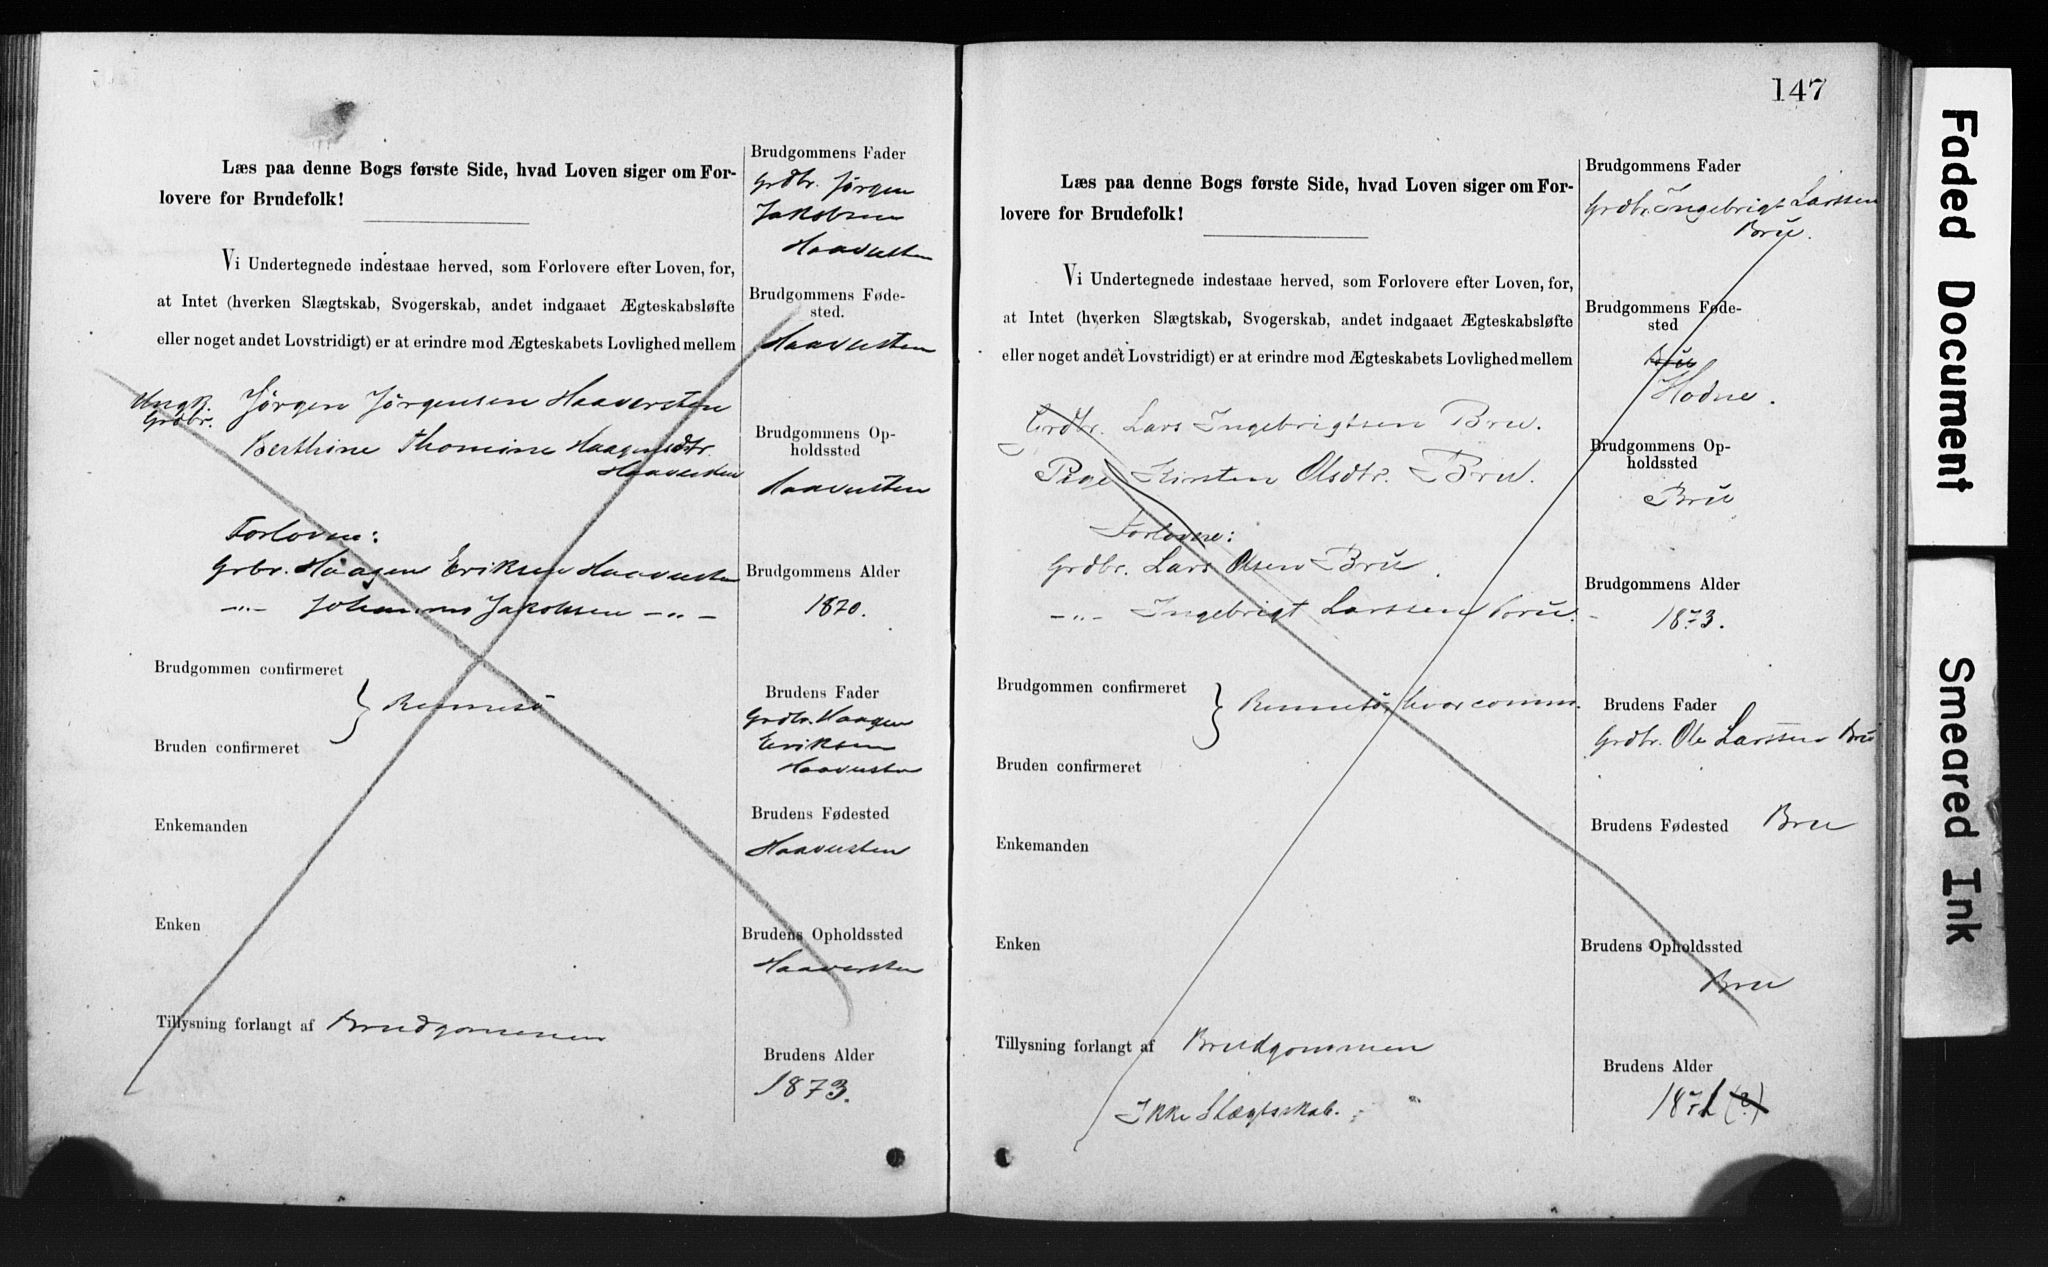 Læs paa denne Bogs første Side, hvad Loven siger om For-
lovere for Brudefolk!
Vi Undertegnede indestaae herved, som Forlovere efter Loven, for,
at Intet (hverken Slægtskab, Svogerskab, andet indgaaet Ægteskabsløfte
eller noget andet Lovstridigt) er at erindre mod Ægteskabets Lovlighed mellem
Ungk.
Grdbr. Jørgen Jørgensen Haaversten
Berthine Thomine Haagensdtr.
Haaversten
Forlovere:
Grbr. Haagen Eriksen Haaversten
-„- Johannes Jakobsen -„-
Brudgommen confirmeret
} Rennesö
Bruden confirmeret
Enkemanden
Enken
Tillysning forlangt af Brudgommen
Brudgommens Fader
Grdbr. Jørgen
Jakobsen
Haaversten
Brudgommens Føde-
sted.
Haaversten
Brudgommens Op-
holdssted
Haaversten
Brudgommens Alder
1870.
Brudens Fader
Grdbr. Haagen
Eriksen
Haaversten
Brudens Fødested
Haaversten
Brudens Opholdssted
Haaversten
Brudens Alder
1873.
147
Læs paa denne Bogs første Side, hvad Loven siger om For-
lovere for Brudefolk!
Vi Undertegnede indestaae herved, som Forlovere efter Loven, for,
at Intet (hverken Slægtskab, Svogerskab, andet indgaaet Ægteskabsløfte
eller noget andet Lovstridigt) er at erindre mod Ægteskabets Lovlighed mellem
Grdbr. Lars Ingebrigtsen Bru.
Pige Kirsten Olsdtr. Bru.
Forlovere:
Grdbr. Lars Olsen Bru.
-„- Ingebrigt Larssen Bru.
Brudgommen confirmeret
} Rennesö, hvor comm.
Bruden confirmeret
Enkemanden
Enken
Tillysning forlangt af Brudgommen
Ikke Slægtsskab.
Brudgommens Fader
Grdbr. Ingebrigt Larssen
Bru.
Brudgommens Føde-
sted
Bru
Hodne.
Brudgommens Op-
holdssted
Bru
Brudgommens Alder
1873.
Brudens Fader
Grdbr. Ole Larssen Bru
Brudens Fødested Bru
Brudens Opholdssted
Bru
Brudens Alder
Faded Document
Smeared Ink